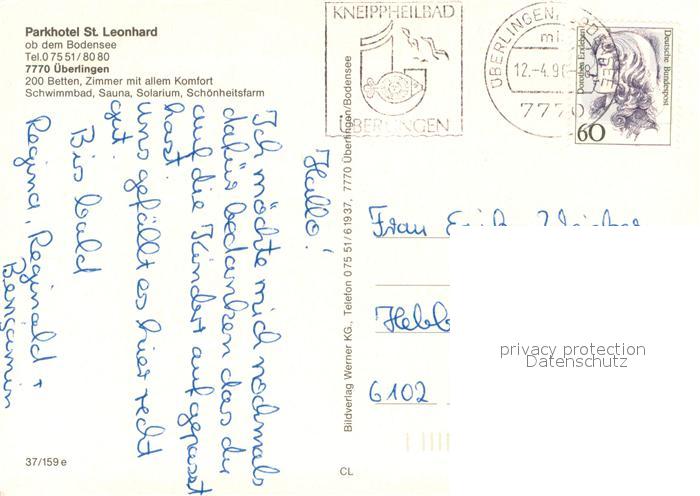 Parkhotel St. Leonhard
ob dem Bodensee
Tel. 0 75 51 / 80 80
7770 Überlingen
200 Betten, Zimmer mit allem Komfort
Schwimmbad, Sauna, Solarium, Schönheitsfarm
KNEIPPHEILBAD
ÜBERLINGEN
ÜBERLINGEN, BODENSEE
mi
12.-4.9
7770
Dorothea Erxleben
Deutsche Bundespost
60
Hallo!
Ich möchte mich nochmals
dafür bedanken das du
auf die Kinder aufgepasst
hast.
uns gefällt es hier recht
gut.
Bis bald
Regina, Reginald +
Benjamin
Bildverlag Werner KG., Telefon 0 75 51 / 6 19 37, 7770 Überlingen/Bodensee
Frau
6102
privacy protection
Datenschutz
37/159 e
CL